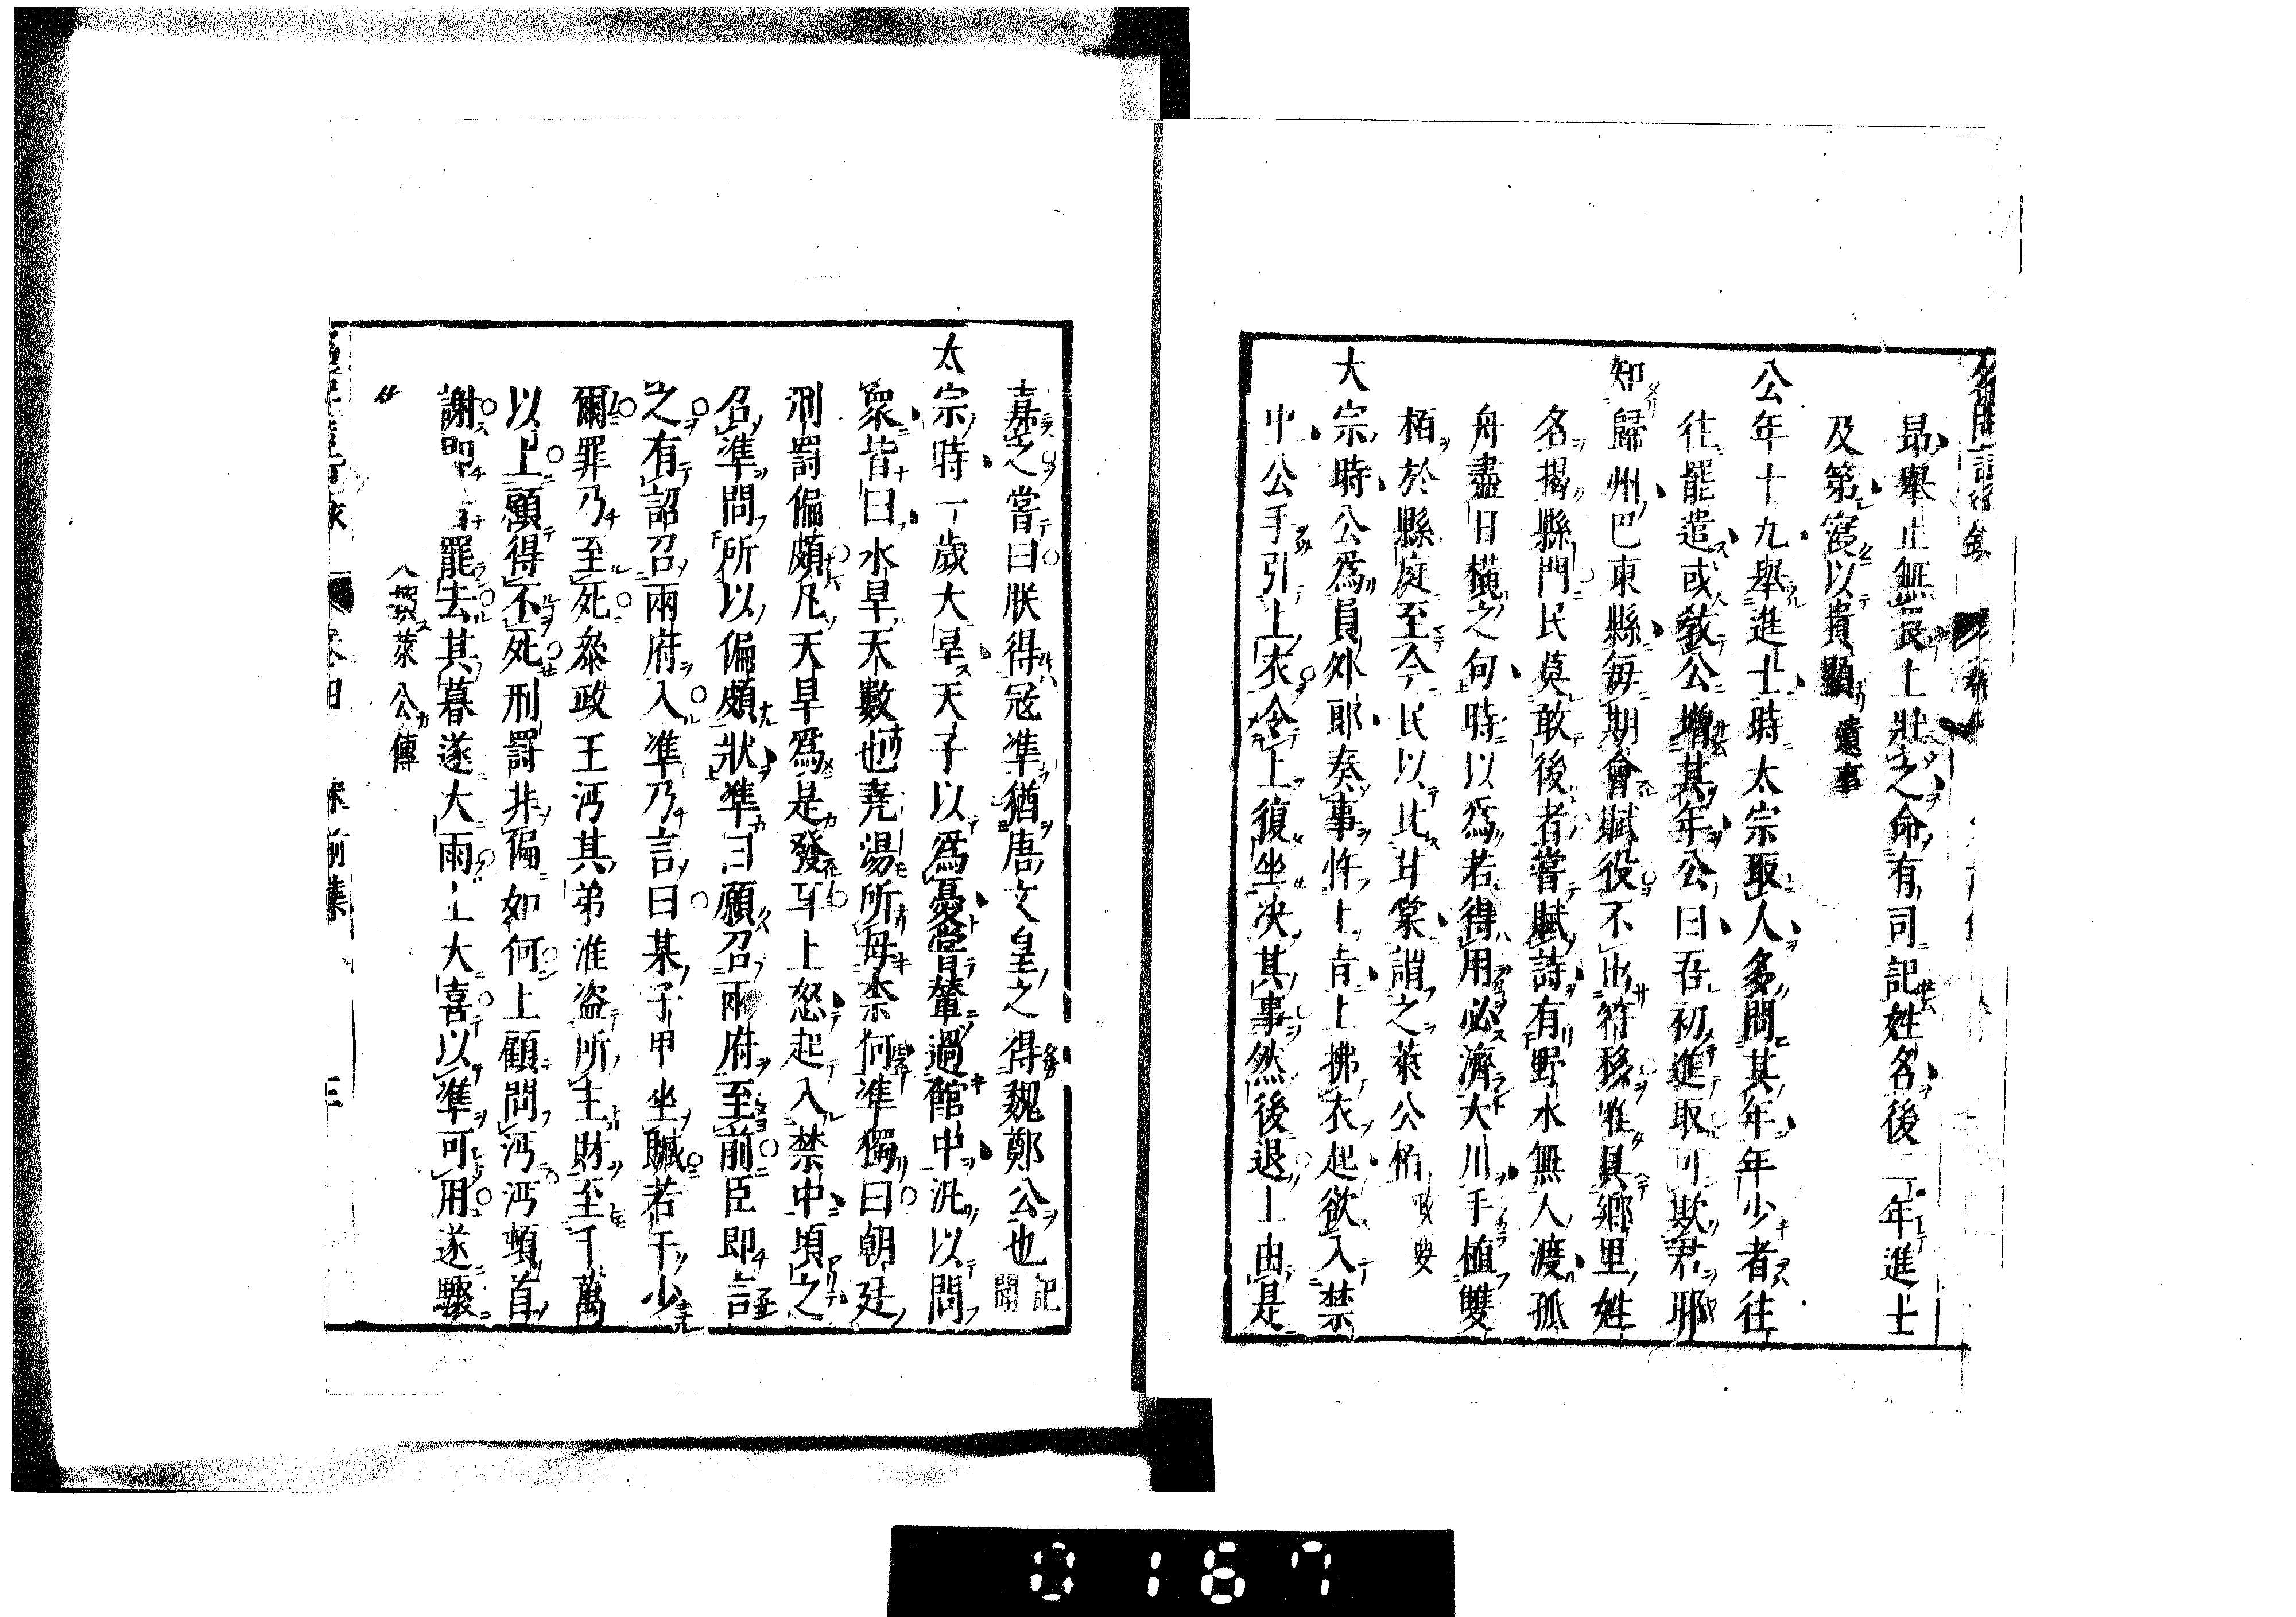 昂舉止無長上壯之命有司記姓名後一年進士
及第寖以貴顯 遺事
公年十九舉進士時太宗取人多問其年年少者往
往罷遣或敎公增其年公曰吾初進取可欺君邪
知歸州巴東縣每期會賦役不出符移惟具鄉里姓
名揭縣門民莫敢後者嘗賦詩有野水無人渡孤
舟盡日橫之句時以爲若得用必濟大川手植雙
栢於縣庭至今民以比甘棠謂之萊公栢
大宗時公爲員外郎奏事忤上旨上拂衣起欲入禁
中公手引上衣令上復坐决其事然後退上由是
嘉之嘗曰朕得冦準猶唐文皇之得魏鄭公也 記聞
太宗時一歲大旱天子以爲憂嘗輦過館中汎以問
衆皆曰水旱天數也堯湯所毋柰何準獨曰朝廷
刑罰偏頗凡天旱爲是發耳上怒起入禁中頃之
召準問所以偏頗狀準曰願召兩府至前臣即言
之有詔召兩府入準乃言曰某子甲坐贓若干少
爾罪乃至死叅政王沔其弟淮盗所主財至千萬
以上顧得不死刑罰非偏如何上顧問沔沔頓首
謝即皆罷去其暮遂大雨上大喜以準可用遂驟
萊公傳
卷四
前集
三